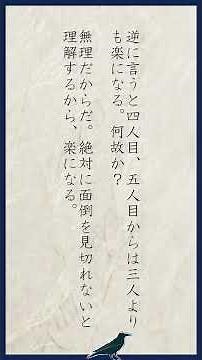 逆に言うと四人目、五人目からは三人より
も楽になる。何故か？
無理だからだ。絶対に面倒を見切れないと
理解するから、楽になる。